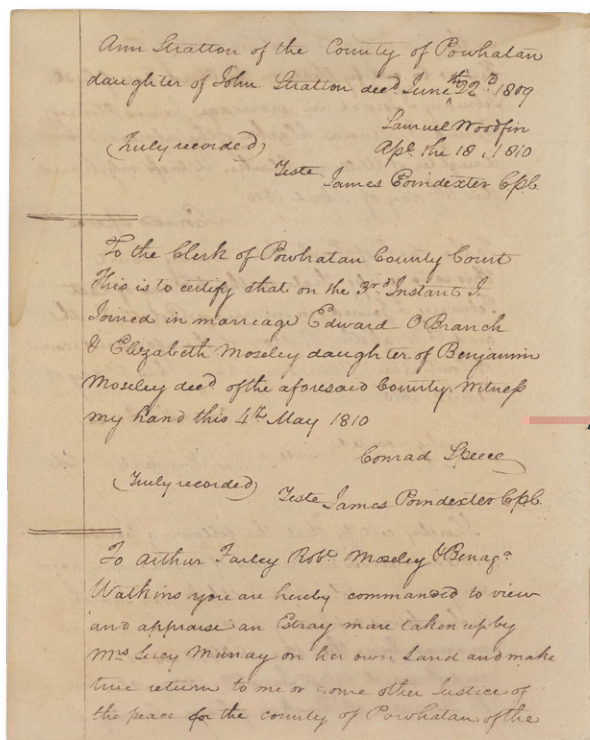 Ann Stratton of the County of Powhatan
daughter of John Stratton decd. June 22d 1809
Samuel Woodfin
(Truly recorded) Apl. the 18, 1810
Teste James Poindexter CPC.
To the Clerk of Powhatan County Court
This is to certify that on the 3rd Instant I
Joined in marreage Edward OBranch
& Elizabeth Moseley daughter of Benjamin
Moseley decd. of the aforesaid County. Witness
my hand this 4th May 1810
Conrad Speece
(Truly recorded) Teste James Poindexter CPC.
To Arthur Farley Robt. Moseley & Benaga
Watkins you are hereby commanded to view
and appraise an Estray mare taken up by
Mrs Lucy Murray on her own Land and make
true return to me or some other Justice of
the peace for the county of Powhatan of the